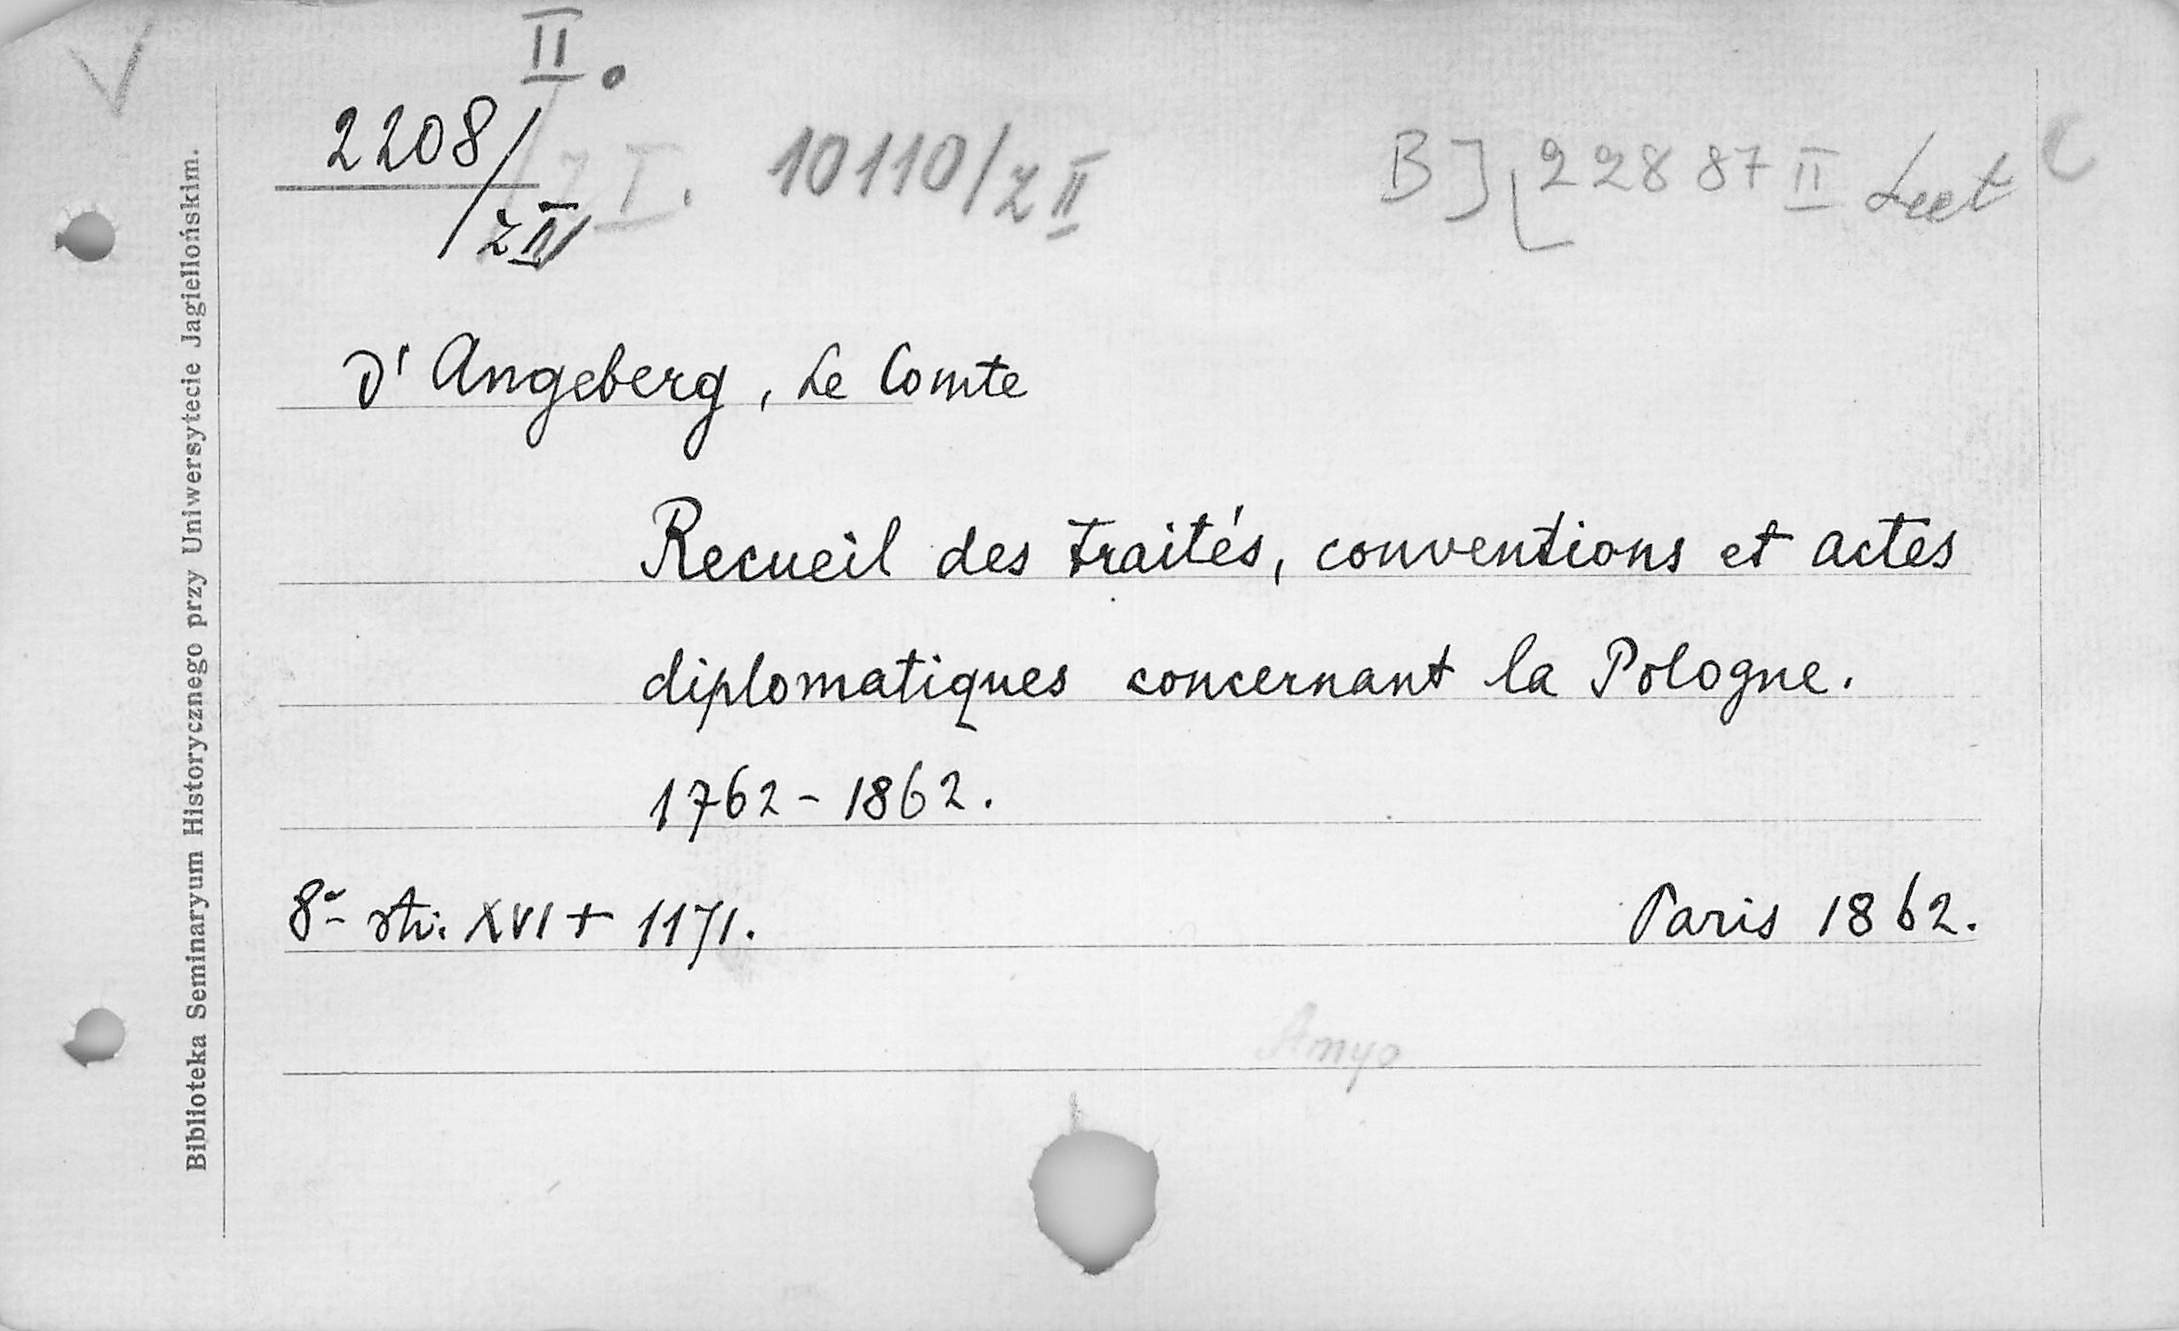 II.
2208/z II
z I. 10110/z II
BJ 22887 II Lect
D' Angeberg, Le Comte
Recueil des traités, conventions et actes
diplomatiques concernant la Pologne.
1762-1862.
8º str. XVI + 1171. Paris 1862.
Biblioteka Seminaryum Historycznego przy Uniwersytecie Jagiellońskim.